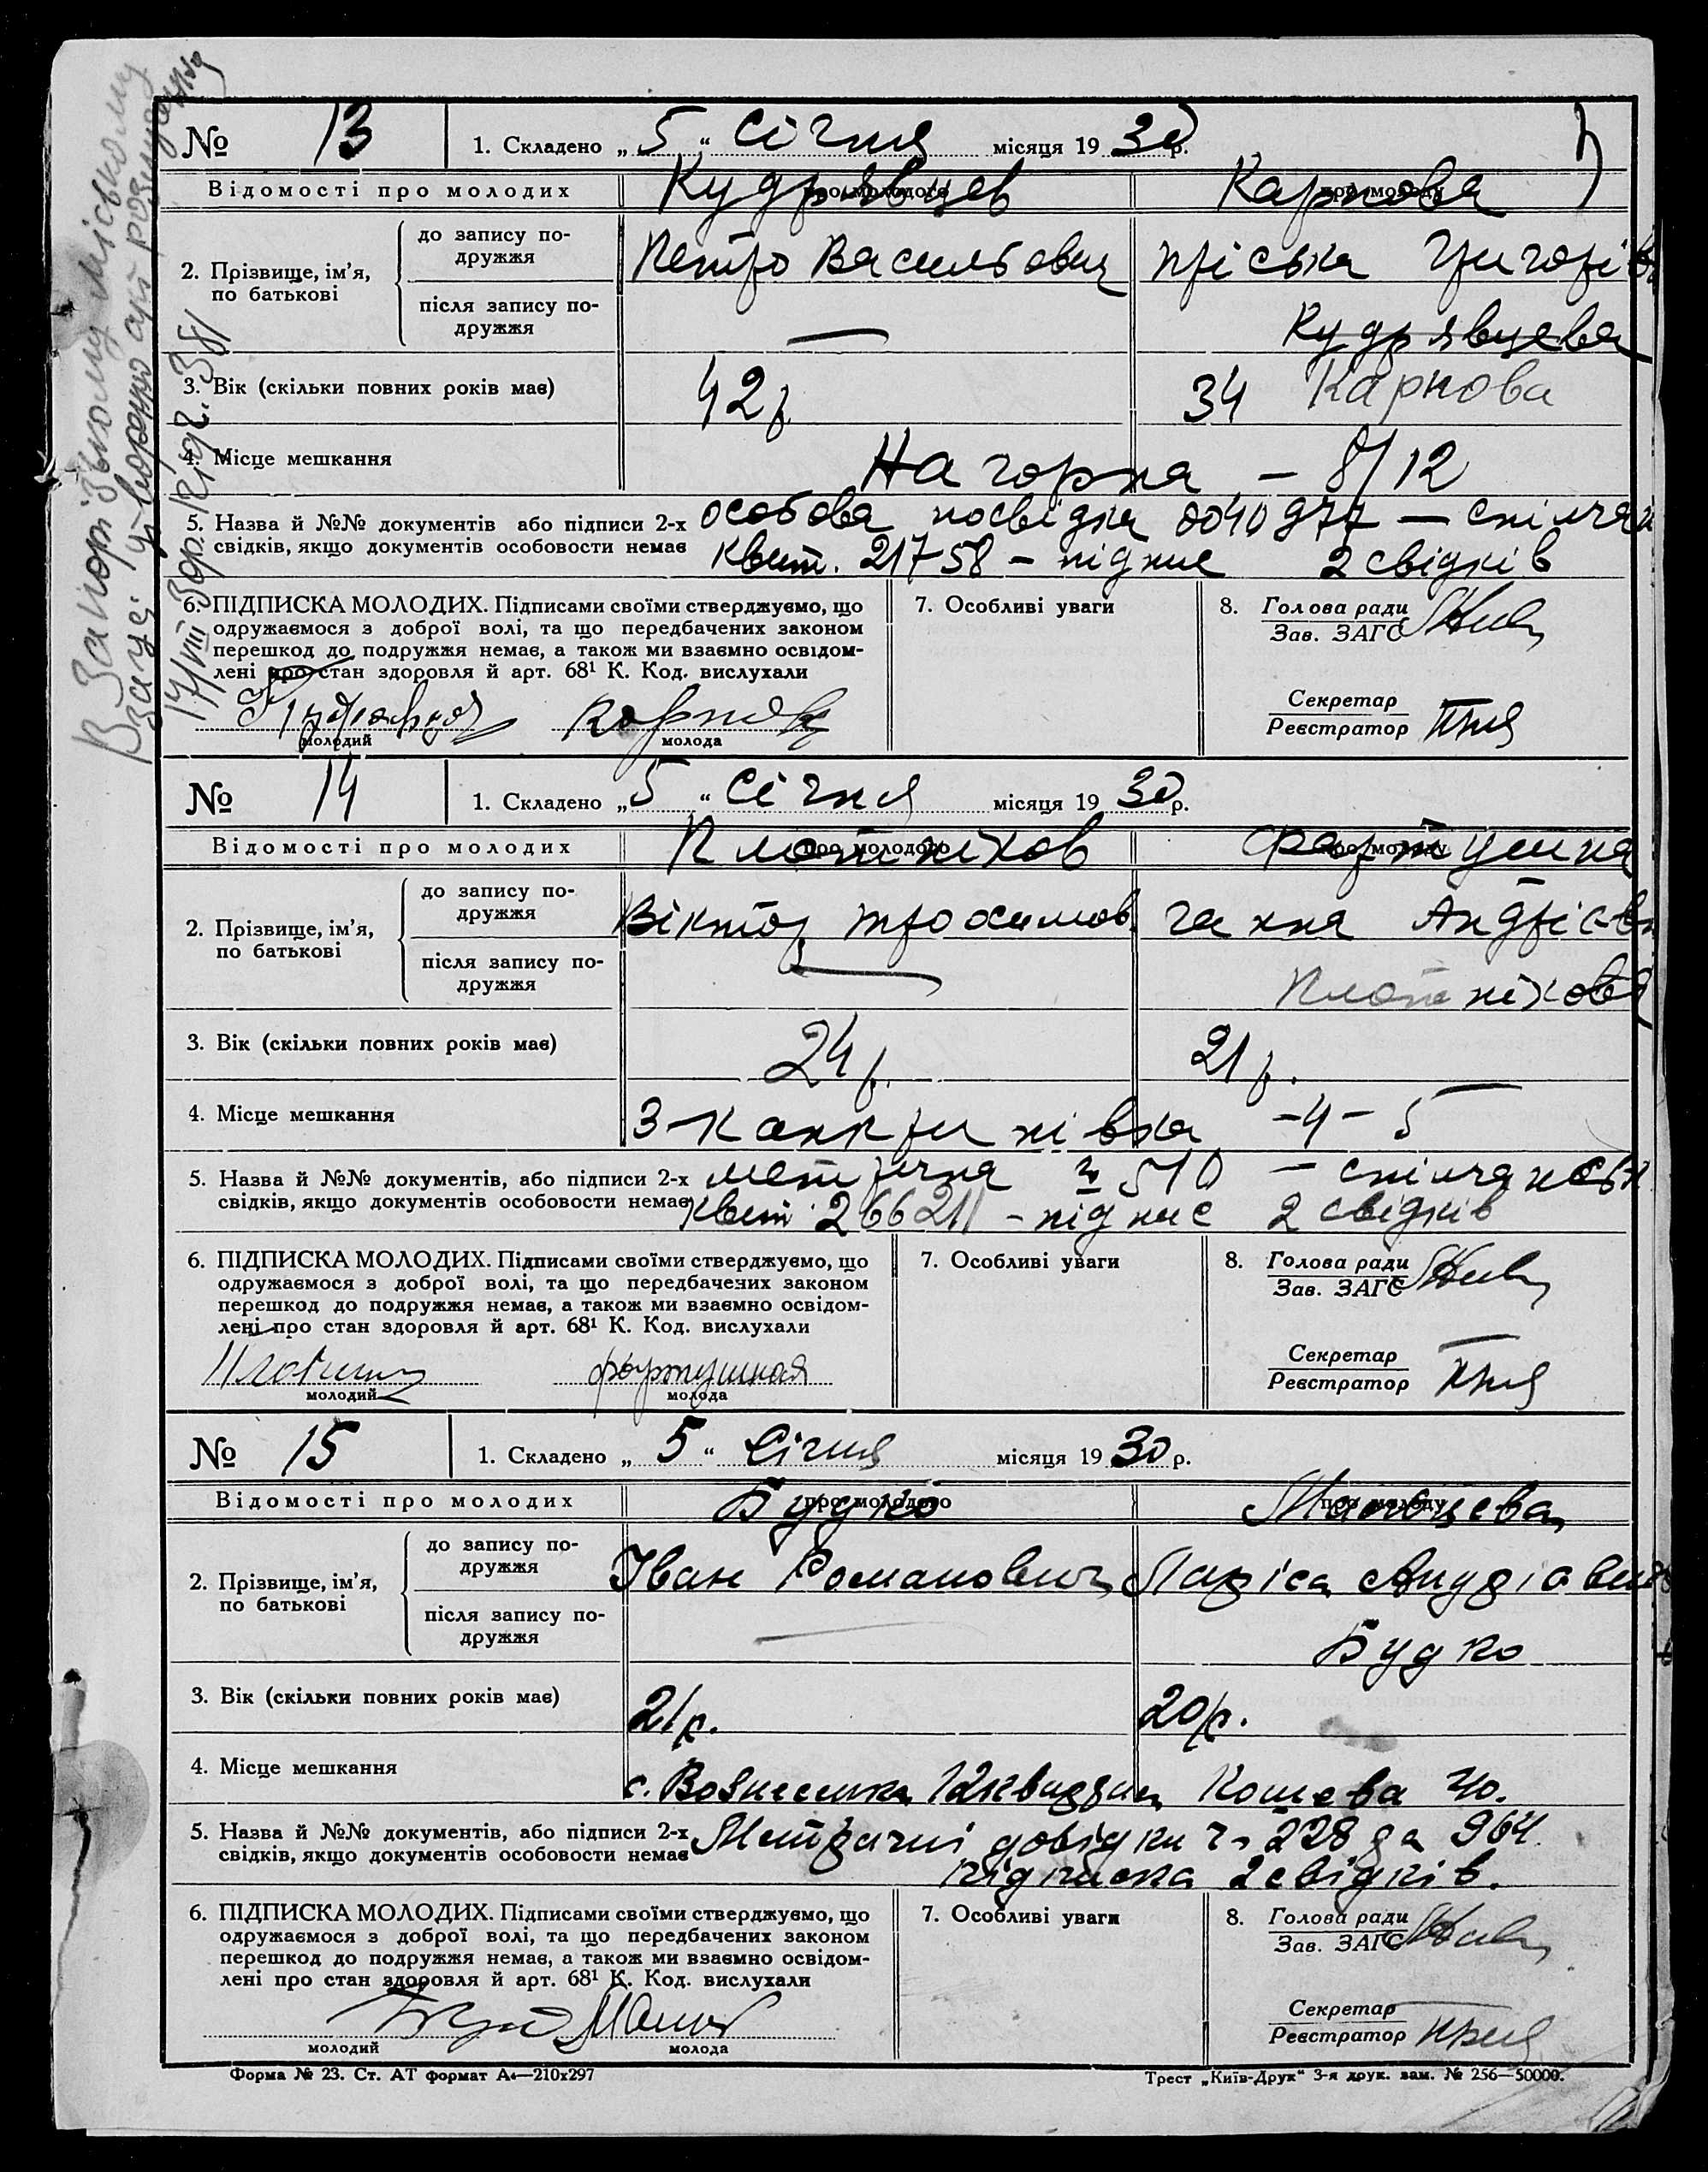 В Запорізькому міському
Загсі утворено акт розлуч
17/VIII 38
№ 13 1. Складено „ 5 “ Січня місяця 19 30 р.
Відомості про молодих про молодого про молоду
Кудрявцев Карпова
2. Прізвище, ім'я, по батькові
до запису по-
дружжя
Петро Васильович Пріська Григорів
після запису по-
дружжя
— Кудрявцева
3. Вік (скільки повних років має) 42 р. 34 Карпова
4. Місце мешкання Нагорна – 8/12
5. Назва й №№ документів або підписи 2-х
свідків, якщо документів особовости немає
особова посвідка 0040977 —
Квит. 21758 – підпис 2 свідків
6. ПІДПИСКА МОЛОДИХ. Підписами своїми стверджуємо, що
одружаємося з доброї волі, та що передбачених законом
перешкод до подружжя немає, а також ми взаємно освідом-
лені про стан здоровля й арт. 68¹ К. Код. вислухали
молодий молода
7. Особливі уваги
8. Голова ради
Зав. ЗАГС
Секретар
Реєстратор
№ 14 1. Складено „ 5 “ Січня місяця 19 30 р.
Відомості про молодих про молодого про молоду
Плотніков Фартушна
2. Прізвище, ім'я,
по батькові
до запису по-
дружжя
Віктор Трохимов. Ганна Андрієвн
після запису по-
дружжя
— Плотнікова
3. Вік (скільки повних років має) 24 р. 21 р.
4. Місце мешкання – 4 – 5
5. Назва й №№ документів, або підписи 2-х
свідків, якщо документів особовости немає
метрична № 510 –
Квит. 266211 – підпис 2 свідків
6. ПІДПИСКА МОЛОДИХ. Підписами своїми стверджуємо, що
одружаємося з доброї волі, та що передбачених законом
перешкод до подружжя немає, а також ми взаємно освідом-
лені про стан здоровля й арт. 68¹ К. Код. вислухали
фартушная
молодий молода
7. Особливі уваги
8. Голова ради
Зав. ЗАГС
Секретар
Реєстратор
№ 15 1. Складено „ 5 “ Січня місяця 19 30 р.
Відомості про молодих про молодого про молоду
Будко
2. Прізвище, ім'я,
по батькові
до запису по-
дружжя
Іван Романович Ларіса Андріовна
після запису по-
дружжя
— Будко
3. Вік (скільки повних років має) 21 р. 20 р.
4. Місце мешкання с. Вознесенка 12 квидрил Кошова 40.
5. Назва й №№ документів, або підписи 2-х
свідків, якщо документів особовости немає
Метричні довідки 228 да 964
підписка 2 свідків.
6. ПІДПИСКА МОЛОДИХ. Підписами своїми стверджуємо, що
одружаємося з доброї волі, та що передбачених законом
перешкод до подружжя немає, а також ми взаємно освідом-
лені про стан здоровля й арт. 68¹ К. Код. вислухали
молодий молода
7. Особливі уваги
8. Голова ради
Зав. ЗАГС
Секретар
Реєстратор
Форма № 23. Ст. АТ формат А₄—210х297 Трест „Київ-Друк“ 3-я друк. зам. № 256—50000.